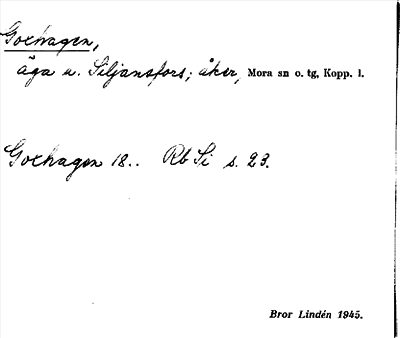 Goxhagen,
äga u. Siljansfors; åker, Mora sn o. tg, Kopp. l.
Goxhagen 18.. Rb Si s. 23.
Bror Lindén 1945.